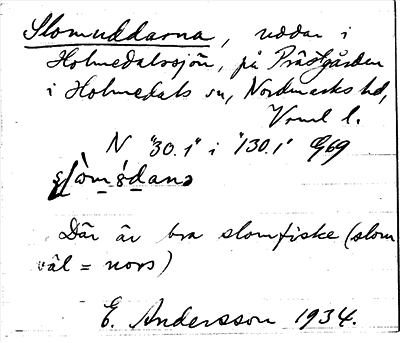 Slomuddarna, uddar i
Holmedalssjön, på Prästgården
i Holmedals sn, Nordmarks hd,
Vrml l.
N "30.1" i "130.1" G69
slòmùdana
Där är bra slomfiske (slom
väl = nors)
E. Andersson 1934.